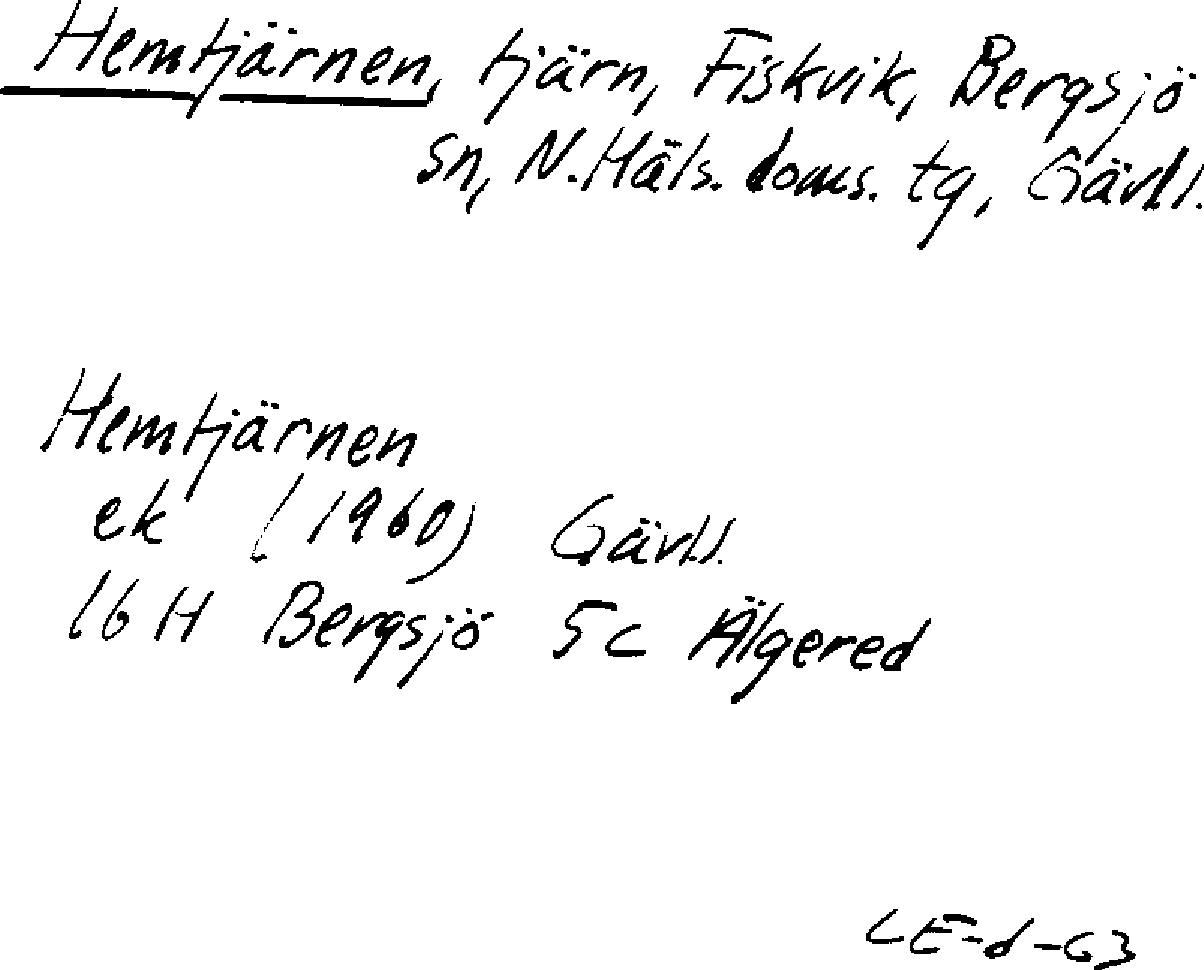 Hemtjärnen, tjärn, Fiskvik, Bergsjö
sn, N. Häls. doms. tg, Gävl.l.
Hemtjärnen
ek (1960) Gävl.l.
16 H Bergsjö 5c Älgered
LE-d-63